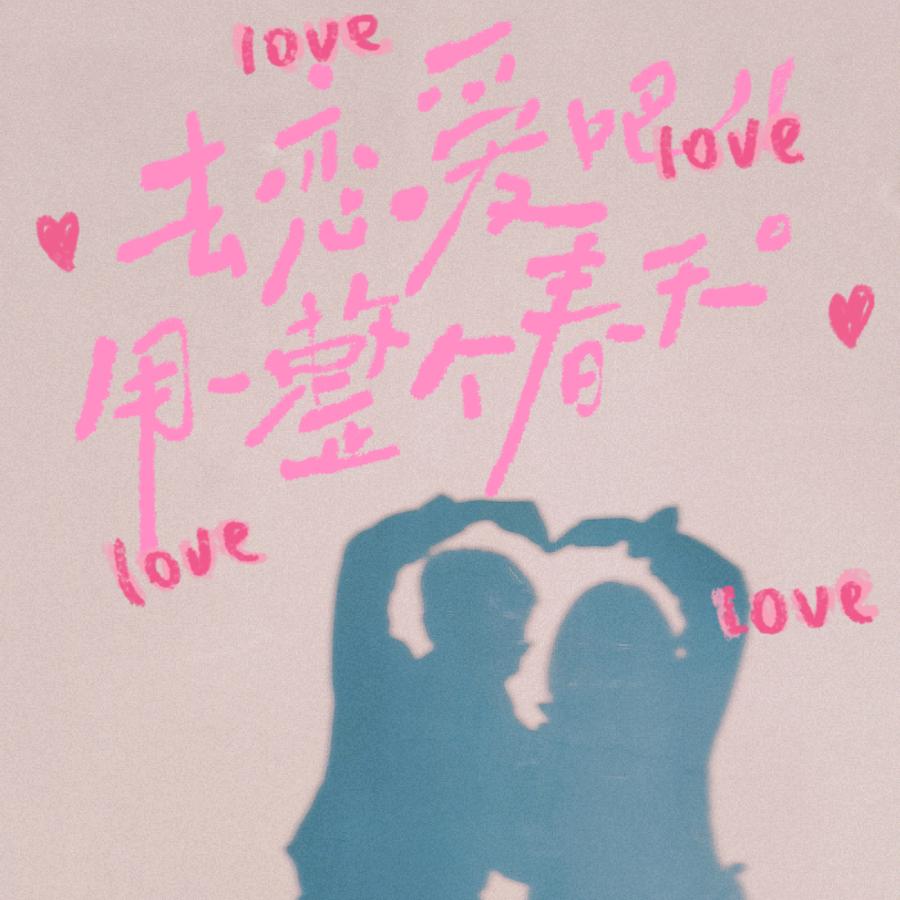 love
去恋爱吧
love
用一整个春天。
love
love